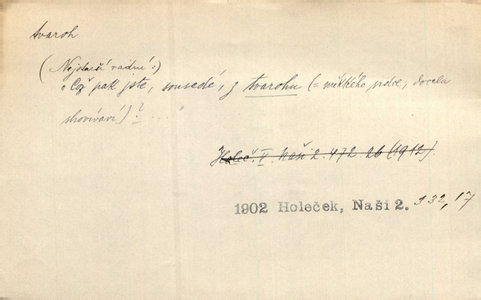 tvaroh
(Nejstarší radní:)
„Což pak jste, sousedé, z tvarohu (= měkkého srdce, docela
shovívaví)? ...."
Holeč. V. Naši 2. 472 26 (1912).
1902 Holeček, Naši 2. 332,17